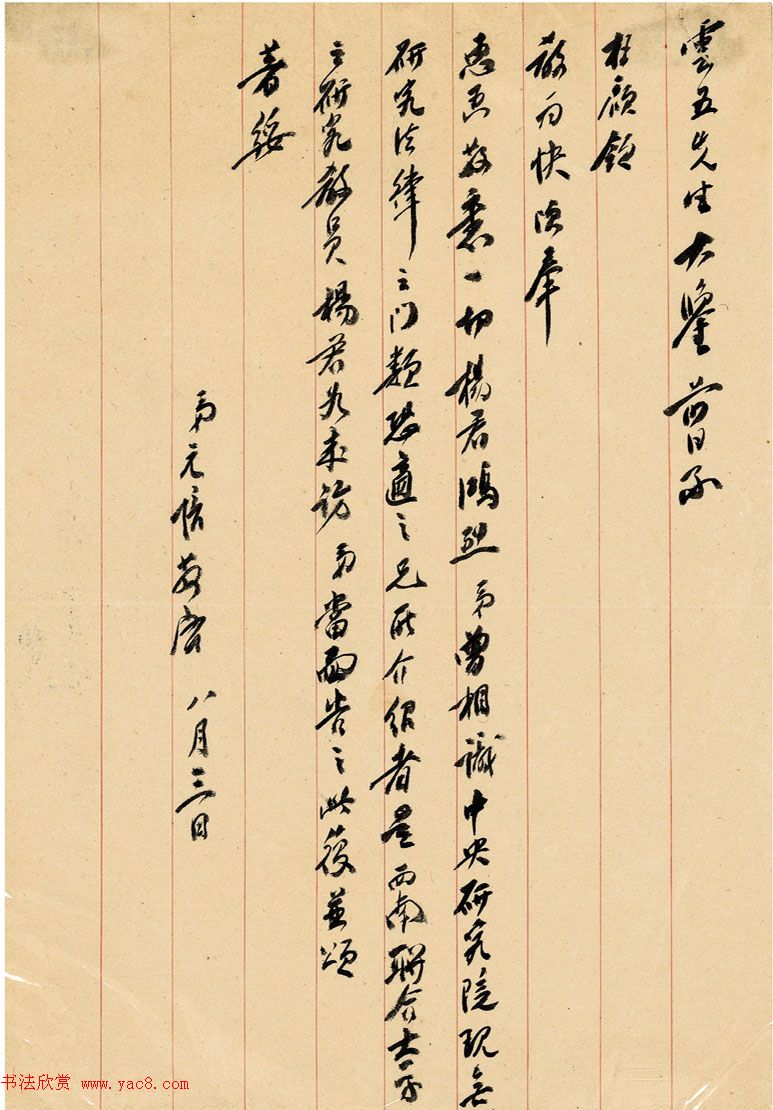 雲五先生大鑒 昔日承
枉顧領
教為快頃奉
惠函敬悉一切楊君鴻烈弟曾相識中央研究院現無
研究法律之門類恐適之兄所介紹者是西南聯合大學
之研究教員楊君如來訪弟當面告之此復並頌
著綏
弟元倍敬啓 八月三日
书法欣赏 www.yac8.com